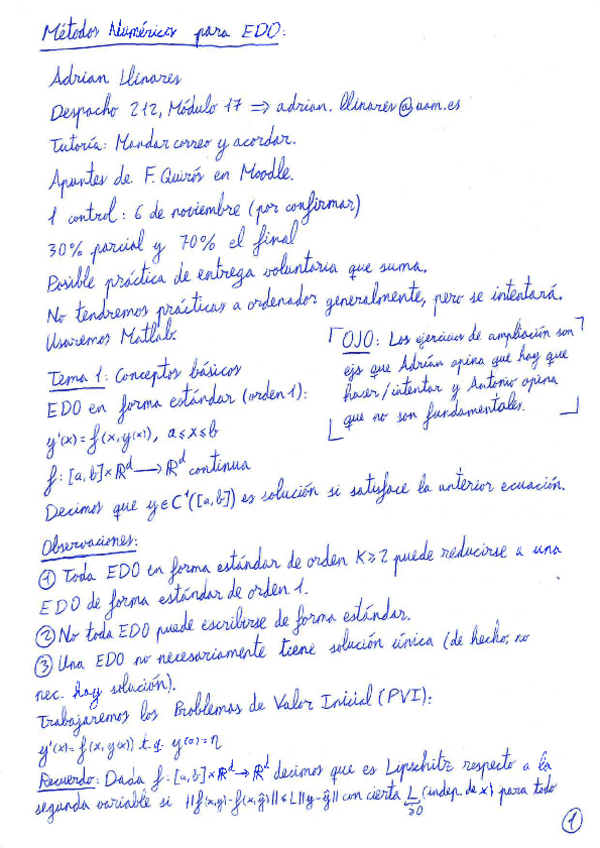 Métodos Numéricos para EDO:
Adrian Llinares
Despacho 212, Módulo 17 => adrian.llinares@uam.es
Tutoría: Mandar correo y acordar.
Apuntes de F. Quirós en Moodle.
1 control: 6 de noviembre (por confirmar)
30% parcial y 70% el final
Posible práctica de entrega voluntaria que suma.
No tendremos prácticas a ordenador generalmente, pero se intentará.
Usaremos Matlab.
OJO: Los ejercicios de ampliación son
ejs que Adrián opina que hay que
hacer/intentar y Antonio opina
que no son fundamentales.
Tema 1: Conceptos básicos
EDO en forma estándar (orden 1):
y'(x)=f(x,y(x)), a≤x≤b
f:[a,b]×ℝᵈ→ℝᵈ continua
Decimos que y∈C¹([a,b]) es solución si satisface la anterior ecuación.
Observaciones:
① Toda EDO en forma estándar de orden K≥2 puede reducirse a una
EDO de forma estándar de orden 1.
② No toda EDO puede escribirse de forma estándar.
③ Una EDO no necesariamente tiene solución única (de hecho, no
nec. hay solución).
Trabajaremos los Problemas de Valor Inicial (PVI):
y'(x)=f(x,y(x)) t.q. y(a)=η
Recuerdo: Dada f:[a,b]×ℝᵈ→ℝᵈ decimos que es Lipschitz respecto a la
segunda variable si ||f(x,y)-f(x,ŷ)||≤L||y-ŷ|| con cierta L (indep. de x) para todo
≥0
①